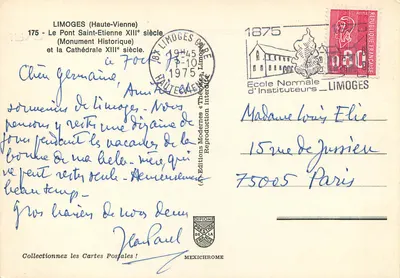 LIMOGES (Haute-Vienne)
175 - Le Pont Saint-Etienne XIIIe siècle
(Monument Historique)
et la Cathédrale XIIIe siècle.
Chère Germaine,
souvenirs de Limoges - Nous
pensons y rester une dizaine de
jours pendant les vacances de la
bonne de ma belle-mère, qui
ne peut rester seule - Heureusement
beau temps -
Gros baisers de nous deux
Jean Paul
Collectionnez les Cartes Postales !
(A) Editions Modernes « Théojac », Limoges
Reproduction Interdite
MEXICHROME
87 LIMOGES GARE
19H45
-10
1975
HAUTE VIENNE
1875
Ecole Normale
d'Instituteurs
LIMOGES
0,80
Madame Louis Elie
15 rue de Jussieu
75005 Paris